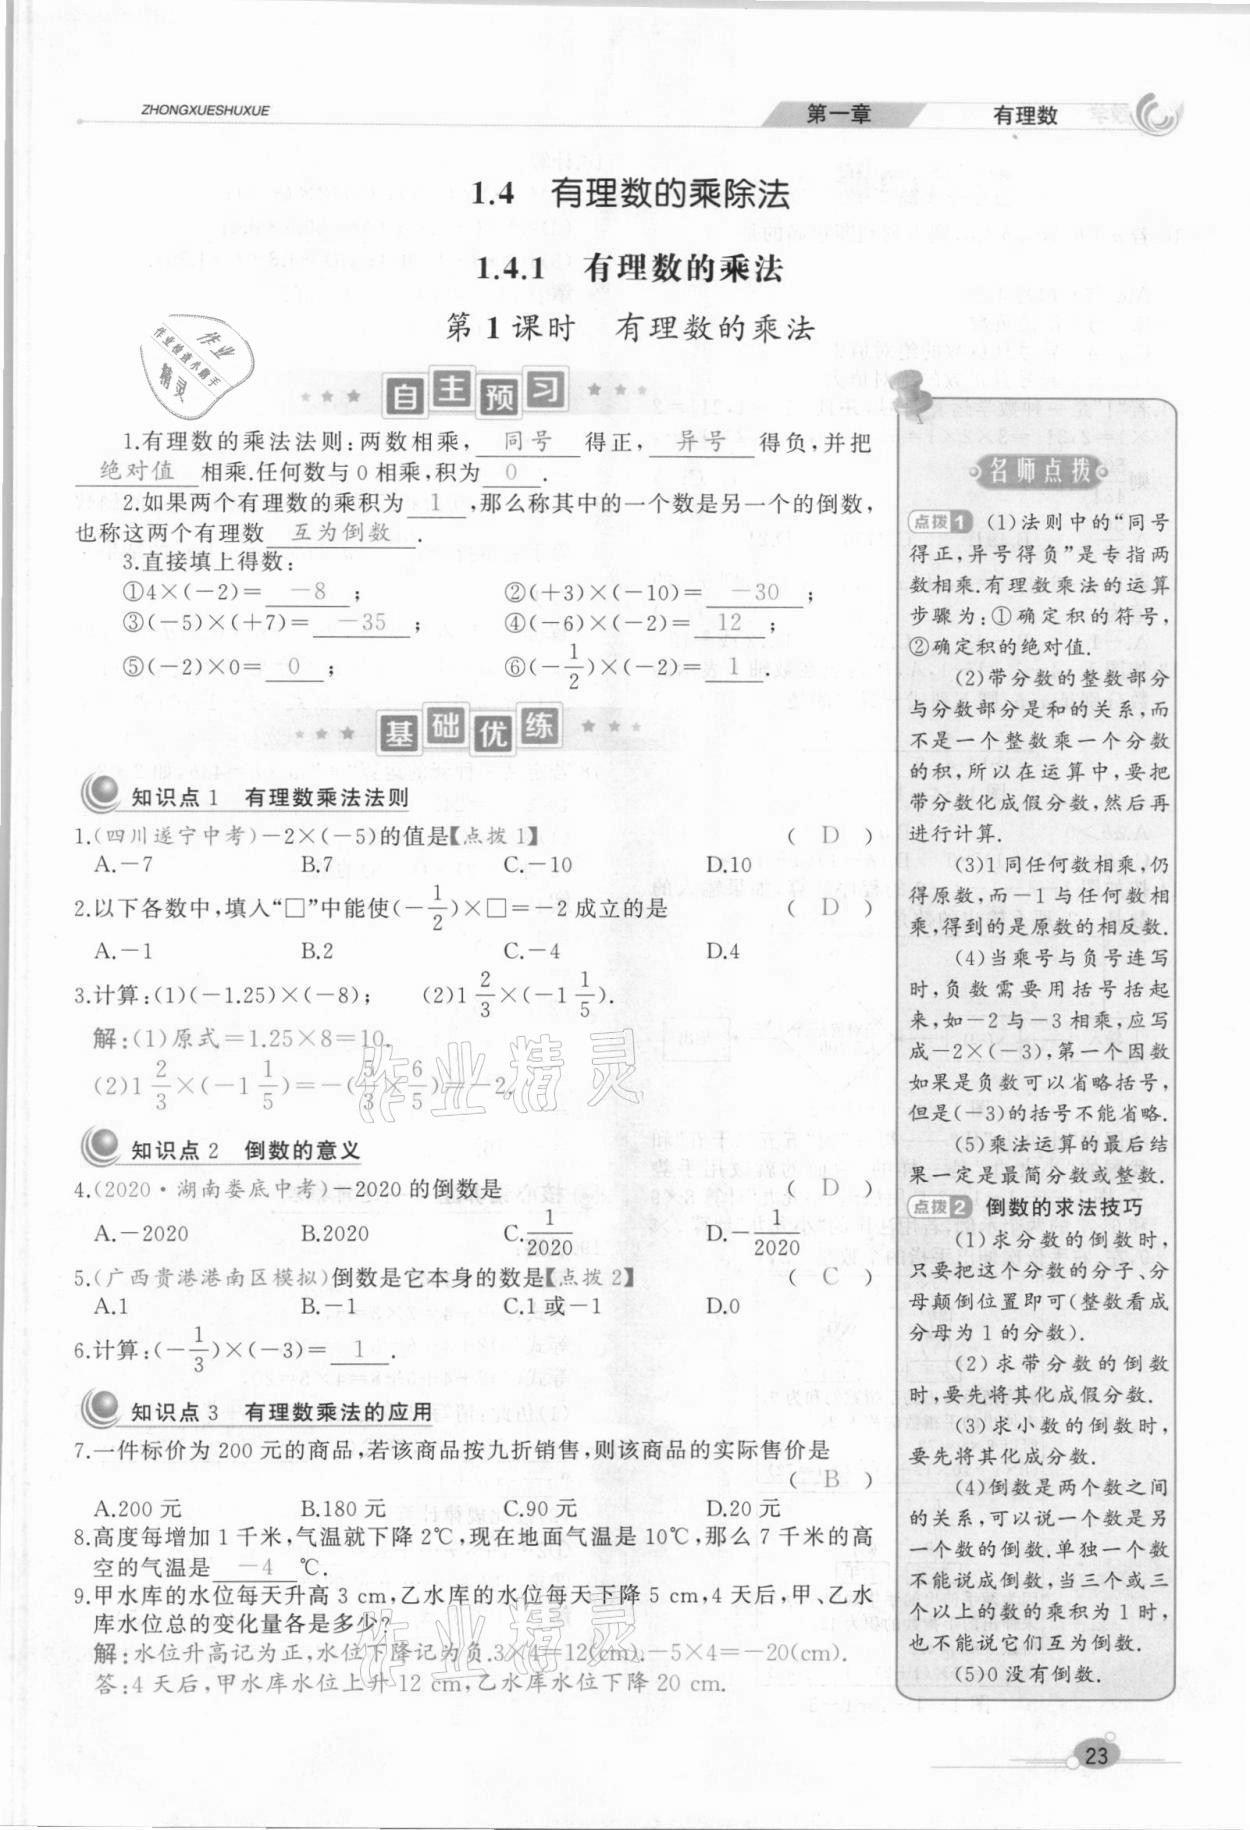 ZHONGXUESHUXUE
第一章 有理数
1.4 有理数的乘除法
1.4.1 有理数的乘法
第1课时 有理数的乘法
作业
作业检查小帮手
精灵
自主预习
1.有理数的乘法法则:两数相乘, 同号 得正, 异号 得负,并把
绝对值 相乘.任何数与0相乘,积为 0 .
2.如果两个有理数的乘积为 1 ,那么称其中的一个数是另一个的倒数,
也称这两个有理数 互为倒数 .
3.直接填上得数:
①4×(-2)= -8 ; ②(+3)×(-10)= -30 ;
③(-5)×(+7)= -35 ; ④(-6)×(-2)= 12 ;
⑤(-2)×0= 0 ; ⑥(-1/2)×(-2)= 1 .
基础优练
知识点1 有理数乘法法则
1.(四川遂宁中考)-2×(-5)的值是【点拨1】 ( D )
A.-7 B.7 C.-10 D.10
2.以下各数中,填入“□”中能使(-1/2)×□=-2成立的是 ( D )
A.-1 B.2 C.-4 D.4
3.计算:(1)(-1.25)×(-8); (2)1 2/3×(-1 1/5).
解:(1)原式=1.25×8=10.
(2)1 2/3×(-1 1/5)=-(5/3×6/5)=-2.
作业精灵
知识点2 倒数的意义
4.(2020·湖南娄底中考)-2020的倒数是 ( D )
A.-2020 B.2020 C.1/2020 D.-1/2020
5.(广西贵港港南区模拟)倒数是它本身的数是【点拨2】 ( C )
A.1 B.-1 C.1或-1 D.0
6.计算:(-1/3)×(-3)= 1 .
知识点3 有理数乘法的应用
7.一件标价为200元的商品,若该商品按九折销售,则该商品的实际售价是
( B )
A.200元 B.180元 C.90元 D.20元
8.高度每增加1千米,气温就下降2℃,现在地面气温是10℃,那么7千米的高
空的气温是 -4 ℃.
9.甲水库的水位每天升高3 cm,乙水库的水位每天下降5 cm,4天后,甲、乙水
库水位总的变化量各是多少?
解:水位升高记为正,水位下降记为负.3×4=12(cm).-5×4=-20(cm)
答:4天后,甲水库水位上升12 cm,乙水库水位下降20 cm.
作业精灵
名师点拨
点拨1 (1)法则中的“同号
得正,异号得负”是专指两
数相乘.有理数乘法的运算
步骤为:①确定积的符号,
②确定积的绝对值.
(2)带分数的整数部分
与分数部分是和的关系,而
不是一个整数乘一个分数
的积,所以在运算中,要把
带分数化成假分数,然后再
进行计算.
(3)1同任何数相乘,仍
得原数,而-1与任何数相
乘,得到的是原数的相反数.
(4)当乘号与负号连写
时,负数需要用括号括起
来,如-2与-3相乘,应写
成-2×(-3),第一个因数
如果是负数可以省略括号,
但是(-3)的括号不能省略.
(5)乘法运算的最后结
果一定是最简分数或整数.
点拨2 倒数的求法技巧
(1)求分数的倒数时,
只要把这个分数的分子、分
母颠倒位置即可(整数看成
分母为1的分数).
(2)求带分数的倒数
时,要先将其化成假分数.
(3)求小数的倒数时,
要先将其化成分数.
(4)倒数是两个数之间
的关系,可以说一个数是另
一个数的倒数.单独一个数
不能说成倒数,当三个或三
个以上的数的乘积为1时,
也不能说它们互为倒数.
(5)0没有倒数.
23